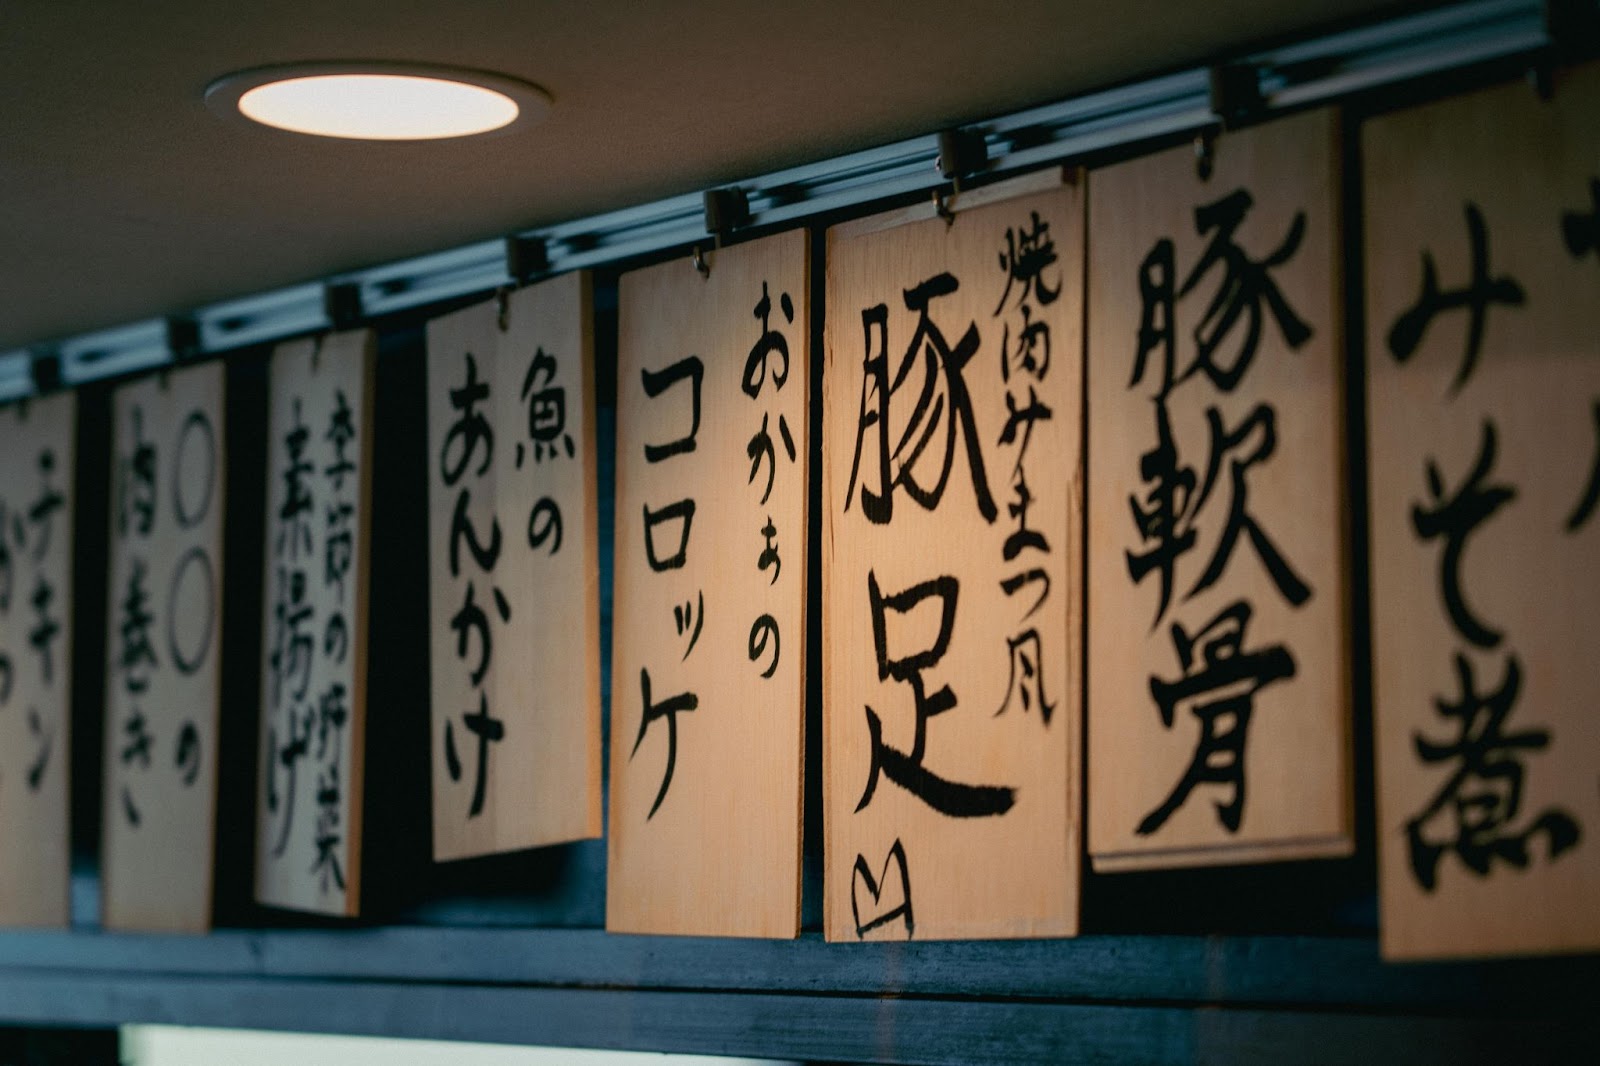 みそ煮
豚軟骨
焼肉みまつ風
豚足
おかぁの
コロッケ
魚の
あんかけ
季節の野菜
素揚げ
〇〇の
肉巻き
チキン